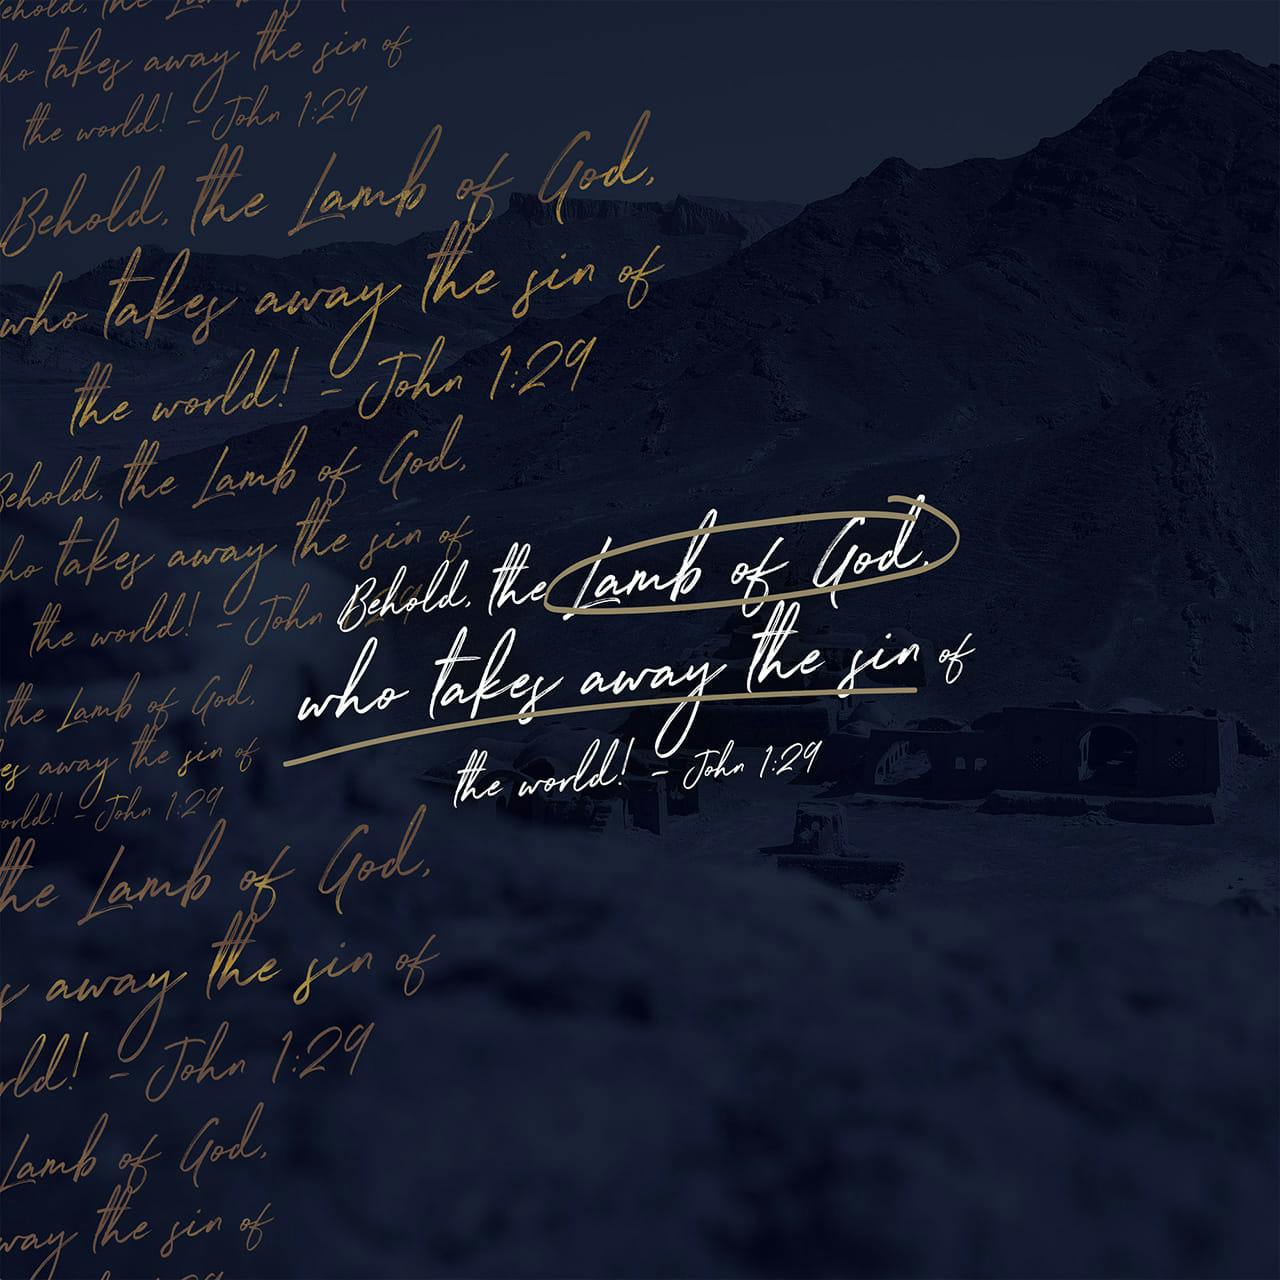 ehold, the Lamb of God,
ho takes away the sin of
the world! – John 1:29
Behold, the Lamb of God,
who takes away the sin of
the world! – John 1:29
Behold, the Lamb of God,
ho takes away the sin of
the world! – John 1:29
Behold, the Lamb of God,
who takes away the sin of
the world! – John 1:29
the Lamb of God,
es away the sin of
orld! – John 1:29
the Lamb of God,
s away the sin of
rld! – John 1:29
Lamb of God,
way the sin of
1:29